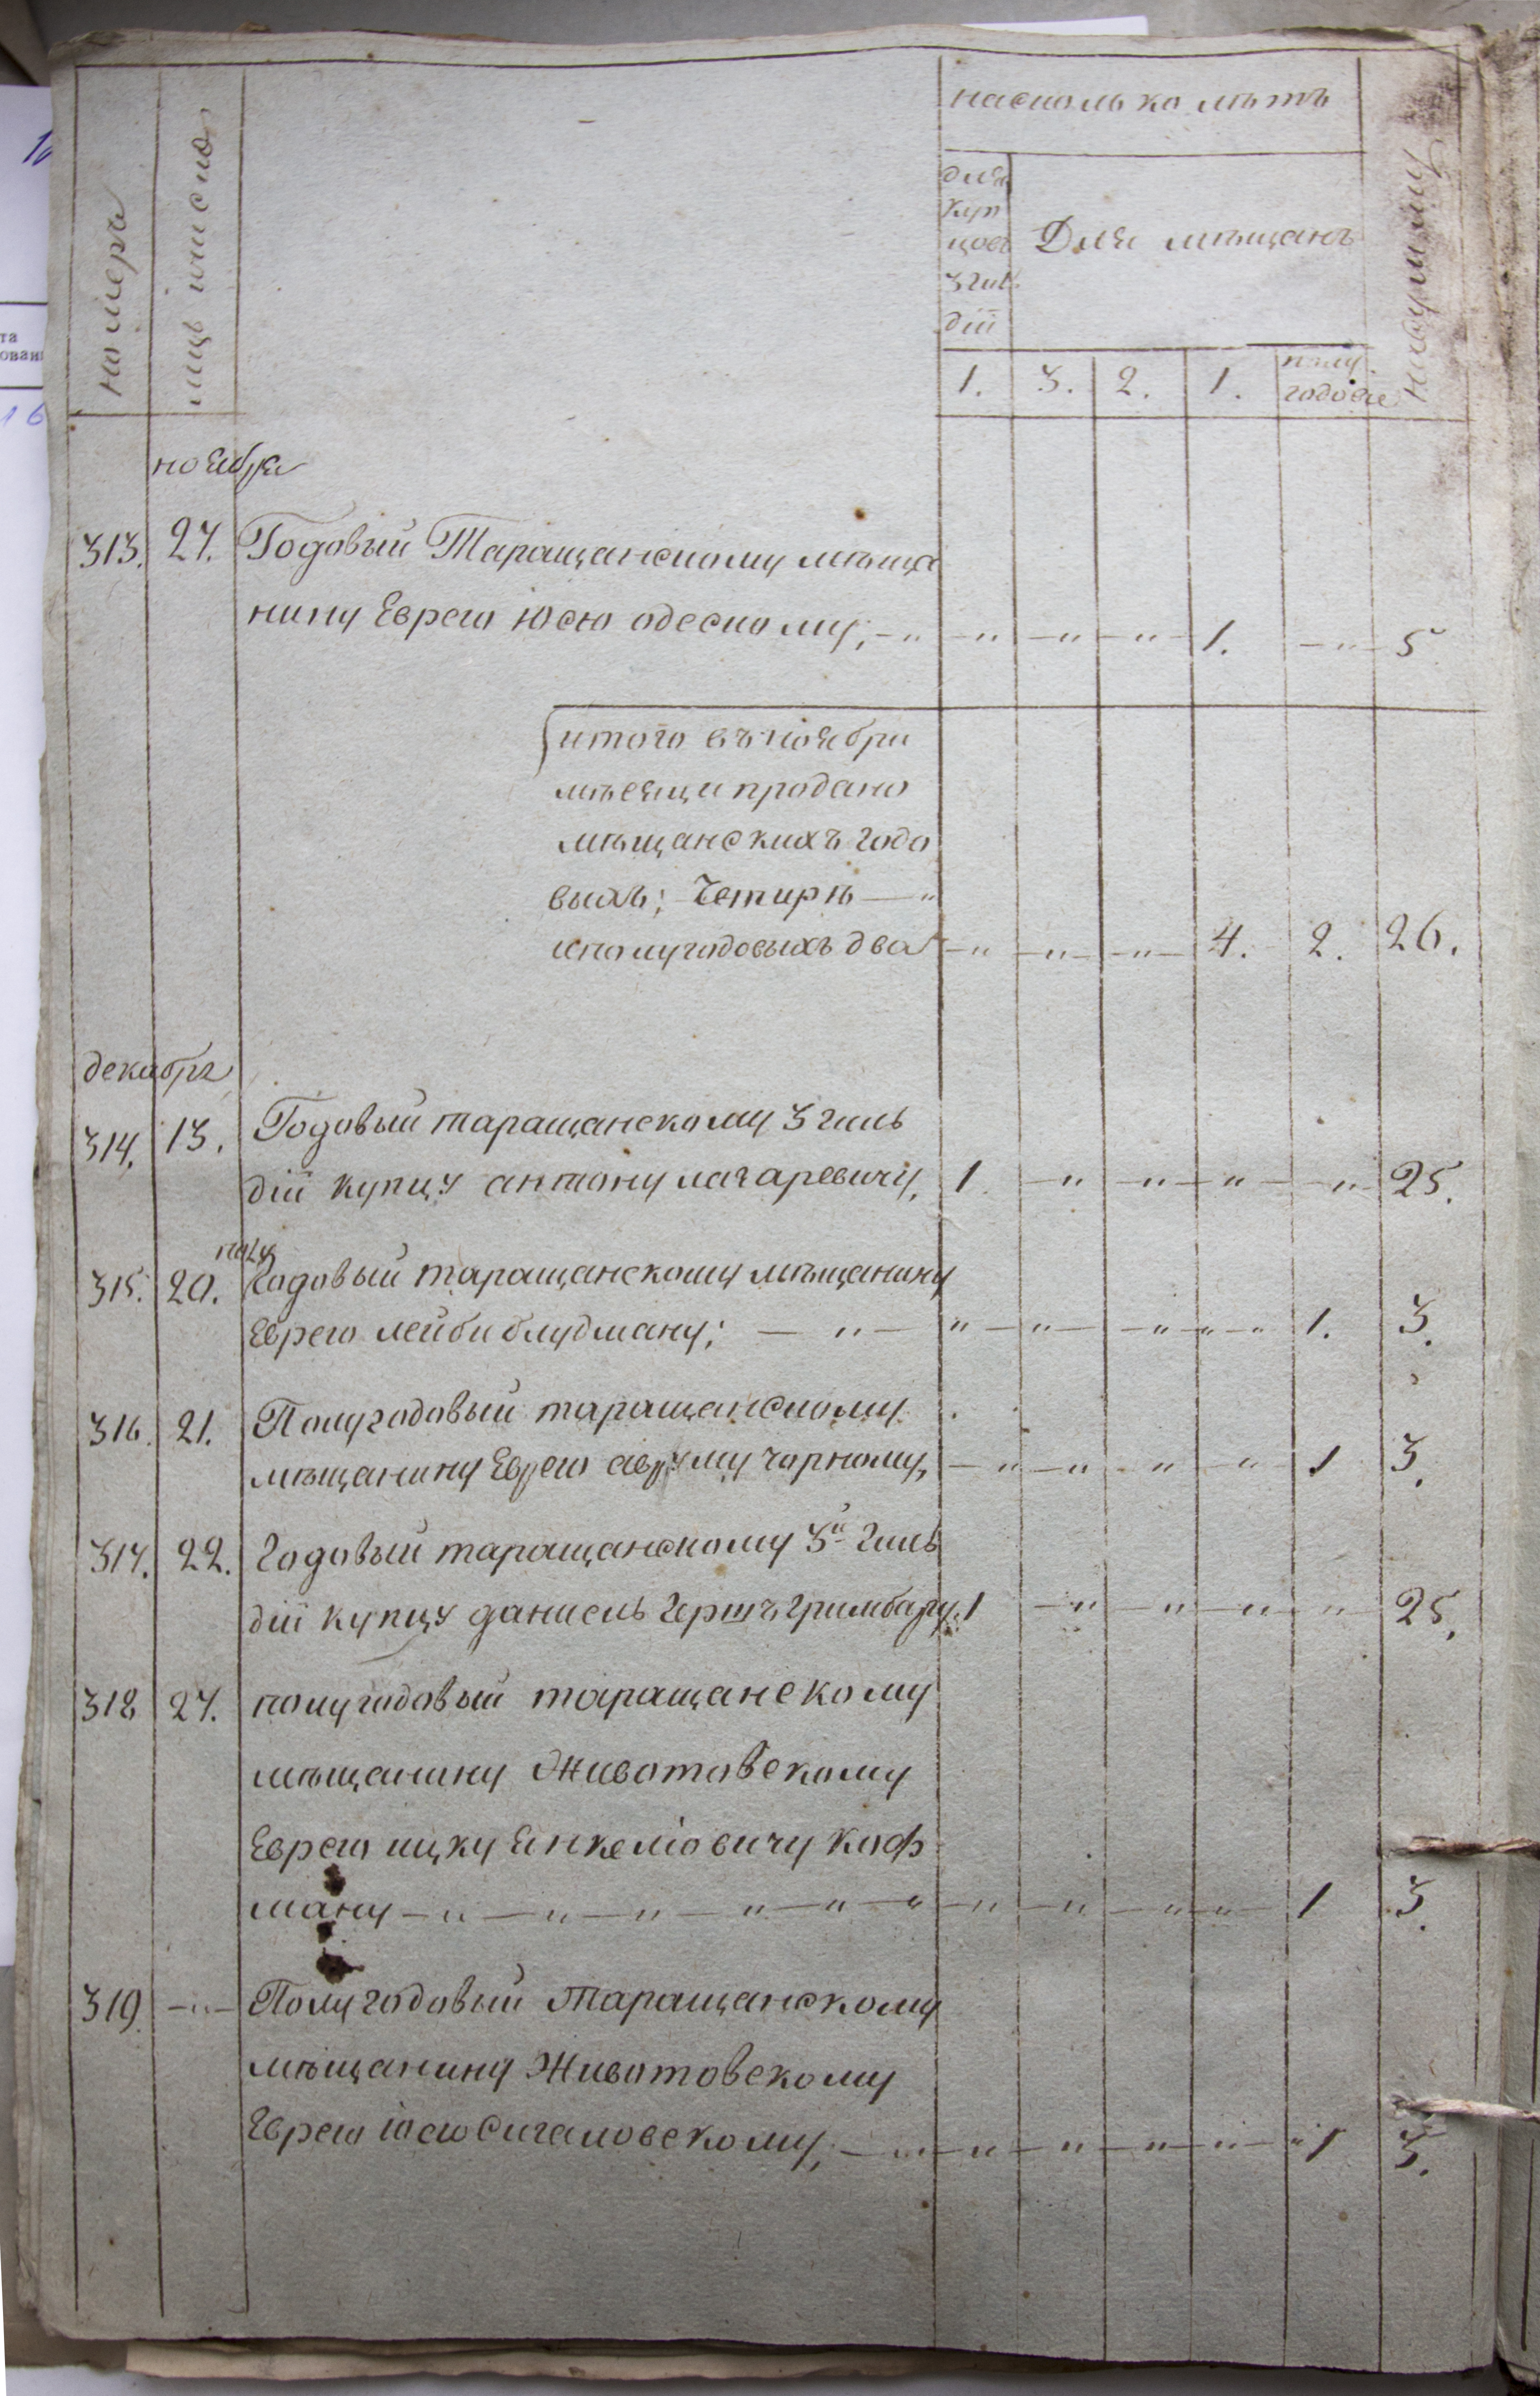 на сколько лѣтъ
номеръ
мцъ и число
на суммму
для
куп
цовъ
3 гиль
діи
Для мѣщанъ
1. 3. 2. 1. полу
годовые
ноября
313. 27. Годовый Таращанскому мѣща
нину Еврею Юсю одескому; 1. 5
итого въ ноябри
мѣсяци продано
мѣщанскихъ годо
выхъ; Четирѣ
и полугодовыхъ два 4. 2. 26.
декабря
314. 13. Годовый таращанскому 3 гиль
діи купцу антону лагаревичу, 1. 25.
полу
315. 20. Годовый таращанскому мѣщанину
Еврею лейби блудману; 1. 3.
316. 21. Полугодовый таращанскому
мѣщанину Еврею авруму чорному, 1 3.
317. 22. Годовый таращанскому 3й гиль
діи купцу даниель Гершъ Гримбару. 1 25.
318 27. полугодовый таращанскому
мѣщанину Животовскому
Еврею ицку Янкеліовичу Коф
ману 1 3.
319. Полугодовый Таращанскому
мѣщанину Животовскому
Еврею Юсю Сигаловскому, 1 3.